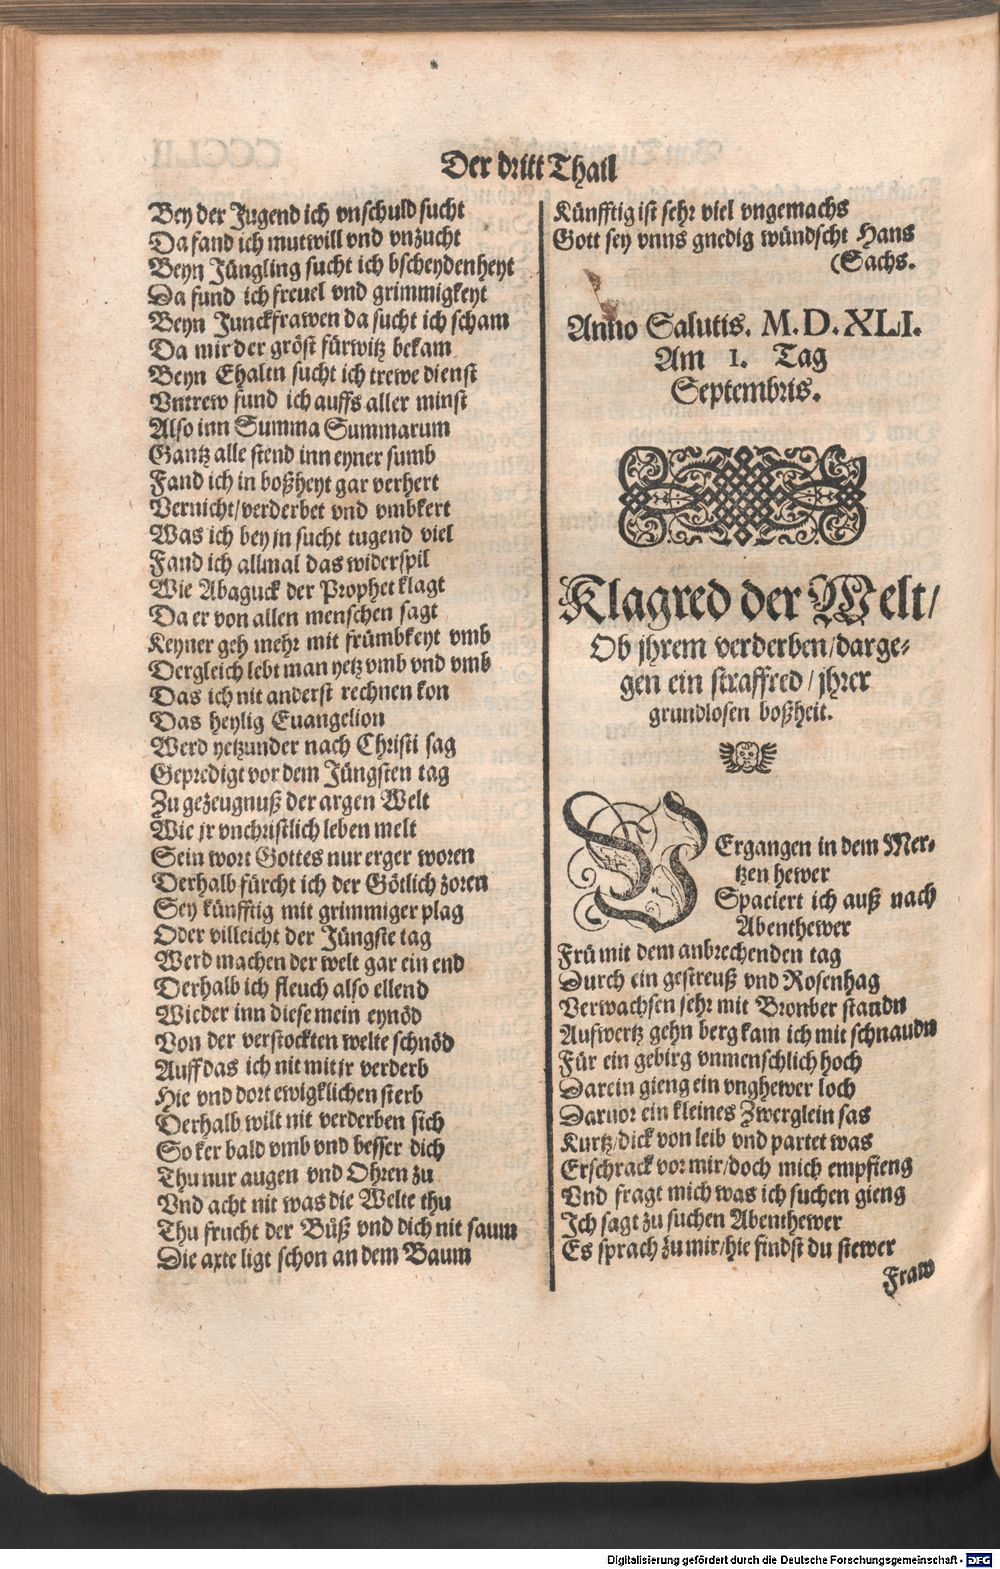 Der dritt Thail
Bey der Jugend ich vnschuld sucht
Da fand ich mutwill vnd vnzucht
Beyn Jüngling sucht ich bscheydenheyt
Da fund ich freuel vnd grimmigkeyt
Beyn Junckfrawen da sucht ich scham
Da mir der gröst fürwitz bekam
Beyn Ehaltn sucht ich trewe dienst
Vntrew fund ich auffs aller minst
Also inn Summa Summarum
Gantz alle stend inn eyner sumb
Fand ich in boßheyt gar verhert
Vernicht/verderbet vnd vmbkert
Was ich bey jn sucht tugend viel
Fand ich allmal das widerspil
Wie Abaguck der Prophet klagt
Da er von allen menschen sagt
Keyner geh mehr mit frümbkeyt vmb
Dergleich lebt man yetz vmb vnd vmb
Das ich nit anderst rechnen kon
Das heylig Euangelion
Werd yetzunder nach Christi sag
Gepredigt vor dem Jüngsten tag
Zu gezeugnuß der argen Welt
Wie jr vnchristlich leben melt
Sein wort Gottes nur erger woren
Derhalb fürcht ich der Götlich zoren
Sey künfftig mit grimmiger plag
Oder villeicht der Jüngste tag
Werd machen der welt gar ein end
Derhalb ich fleuch also ellend
Wieder inn diese mein eynöd
Von der verstockten welte schnöd
Auff das ich nit mit jr verderb
Hie vnd dort ewigklichen sterb
Derhalb wilt nit verderben sich
So ker bald vmb vnd besser dich
Thu nur augen vnd Ohren zu
Vnd acht nit was die Welte thu
Thu frucht der Bůß vnd dich nit saum
Die axte ligt schon an dem Baum
Künfftig ist sehr viel vngemachs
Gott sey vnns gnedig wündscht Hans
(Sachs.
Anno Salutis. M.D.XLI.
Am 1. Tag
Septembris.
Klagred der Welt/
Ob jhrem verderben/darge-
gen ein straffred/jhrer
grundlosen boßheit.
VErgangen in dem Mer-
tzen hewer
Spaciert ich auß nach
Abenthewer
Frü mit dem anbrechenden tag
Durch ein gestreuß vnd Rosenhag
Verwachsen sehr mit Bronber standn
Aufwertz gehn berg kam ich mit schnaudn
Für ein gebirg vnmenschlich hoch
Darein gieng ein vnghewer loch
Daruor ein kleines Zwerglein sas
Kurtz/dick von leib vnd partet was
Erschrack vor mir/doch mich empfieng
Vnd fragt mich was ich suchen gieng
Ich sagt zu suchen Abenthewer
Es sprach zu mir/hie findst du stewer
Fraw
Digitalisierung gefördert durch die Deutsche Forschungsgemeinschaft - DFG